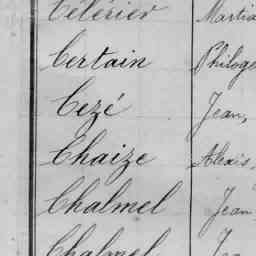 Célérier Martia
Certain Philoge
Cezé Jean,
Chaize Alexis,
Chalmel Jean
Chalmel Jea